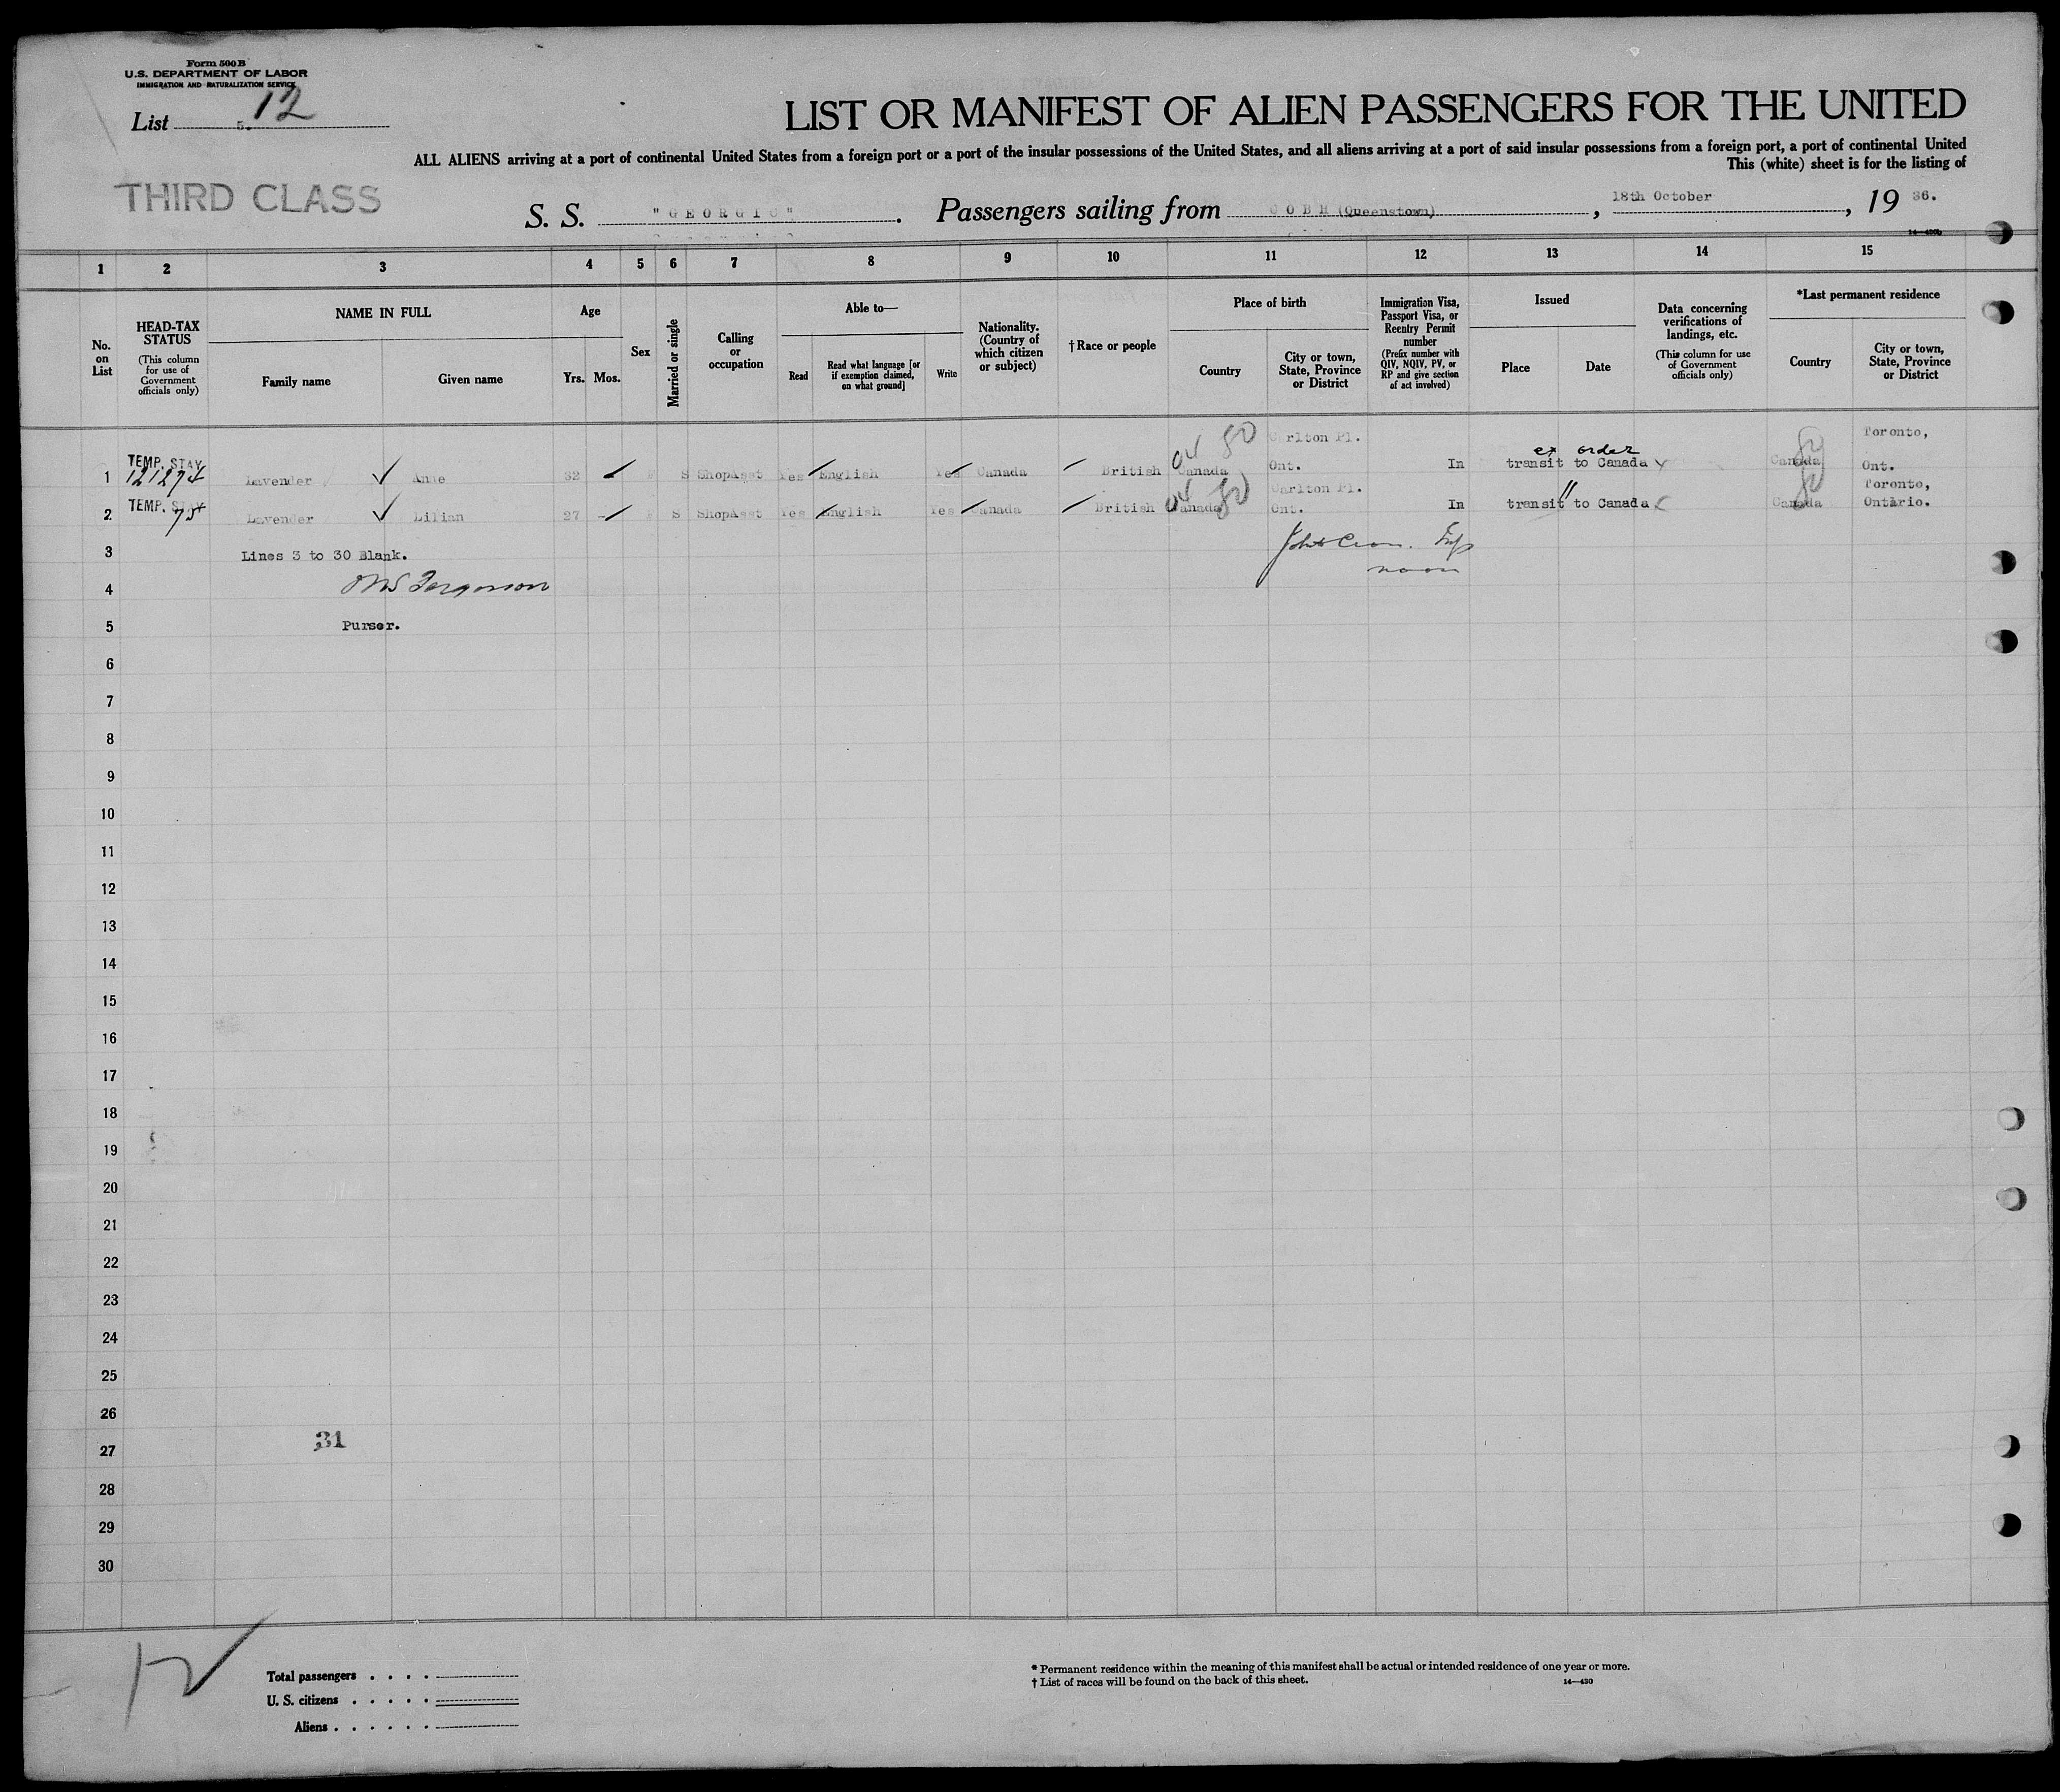 Form 500 B
U.S. DEPARTMENT OF LABOR
IMMIGRATION AND NATURALIZATION SERVICE
List 5. 12
LIST OR MANIFEST OF ALIEN PASSENGERS FOR THE UNITED
ALL ALIENS arriving at a port of continental United States from a foreign port or a port of the insular possessions of the United States, and all aliens arriving at a port of said insular possessions from a foreign port, a port of continental United
This (white) sheet is for the listing of
THIRD CLASS
S. S. "GEORGIC". Passengers sailing from COBH (Queenstown), 18th October, 19 36.
14—430b
1 2 3 4 5 6 7 8 9 10 11 12 13 14 15
No. on List
HEAD-TAX STATUS
(This column for use of Government officials only)
NAME IN FULL
Family name
Given name
Age
Yrs. Mos.
Sex
Married or single
Calling or occupation
Able to—
Read
Read what language [or if exemption claimed, on what ground]
Write
Nationality. (Country of which citizen or subject)
†Race or people
Place of birth
Country
City or town, State, Province or District
Immigration Visa, Passport Visa, or Reentry Permit number
(Prefix number with QIV, NQIV, PV, or RP and give section of act involved)
Issued
Place
Date
Data concerning verifications of landings, etc.
(This column for use of Government officials only)
*Last permanent residence
Country
City or town, State, Province or District
04 80 Carlton Pl. ex order 80 Toronto,
TEMP. STAY
1 121274 Lavender Anne 32 F S ShopAsst Yes English Yes Canada British Canada Ont. In transit to Canada Canada Ont.
04 80 Carlton Pl. " 80 Toronto,
TEMP. STAY
2 Lavender Lilian 27 - F S ShopAsst Yes English Yes Canada British Canada Ont. In transit to Canada Canada Ontario.
3 Lines 3 to 30 Blank.
4 Ferguson
5 Purser.
6
7
8
9
10
11
12
13
14
15
16
17
18
19
20
21
22
23
24
25
26
31
27
28
29
30
12
Total passengers
U. S. citizens
Aliens
* Permanent residence within the meaning of this manifest shall be actual or intended residence of one year or more.
† List of races will be found on the back of this sheet.
14—430